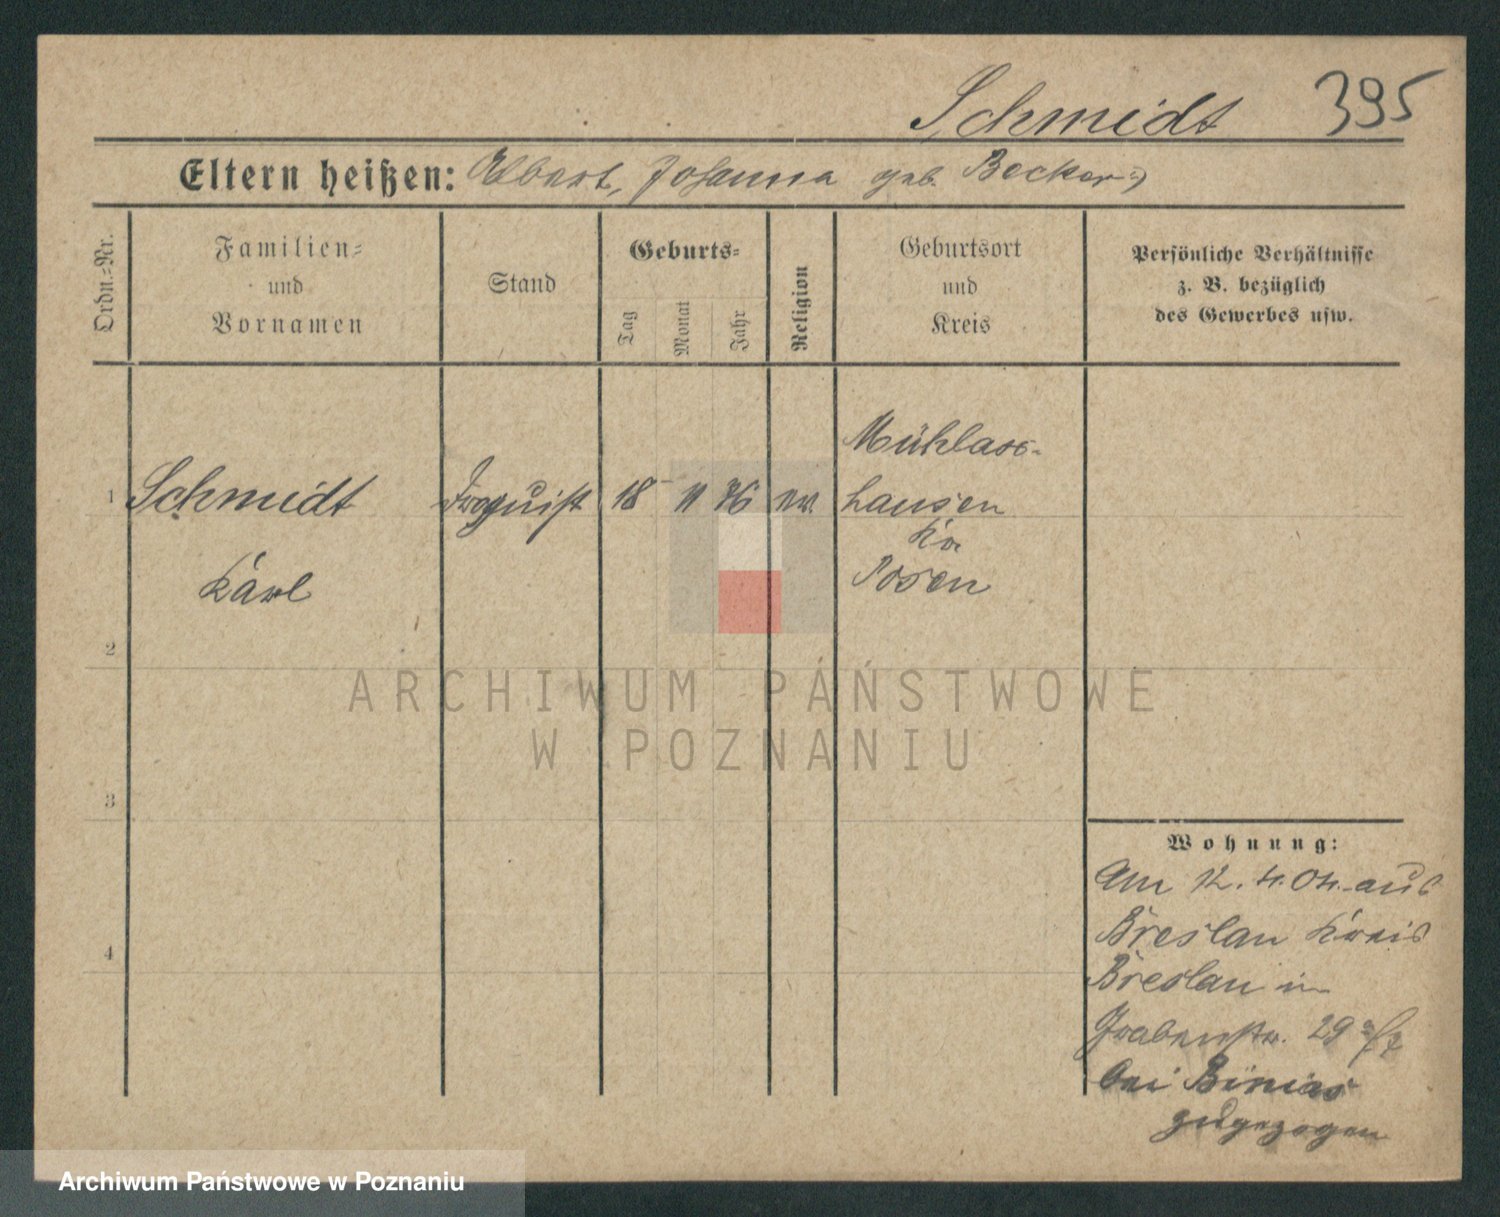 Schmidt 395
Eltern heißen: Albert, Johanna geb. Becker
Ordn.=Nr.
Familien=
und
Vornamen
Stand
Geburts=
Tag
Monat
Jahr
Religion
Geburtsort
und
Kreis
Persönliche Verhältnisse
z. B. bezüglich
des Gewerbes usw.
1 Schmidt
Karl
Droguist
18 11 76 ev.
hausen
Kr
Posen
2
3
4
ARCHIWUM PAŃSTWOWE
W POZNANIU
Wohnung:
Am 12. 4. 04. aus
Breslau Kreis
Breslau in
Grabenstr. 29
bei Binias
zugezogen
Archiwum Państwowe w Poznaniu